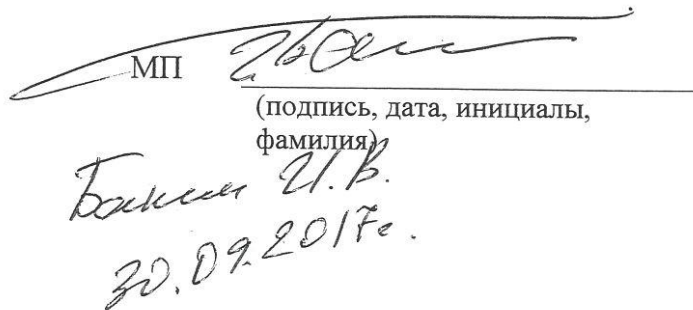 МП
(подпись, дата, инициалы,
фамилия)
И.В.
30.09.2017г.